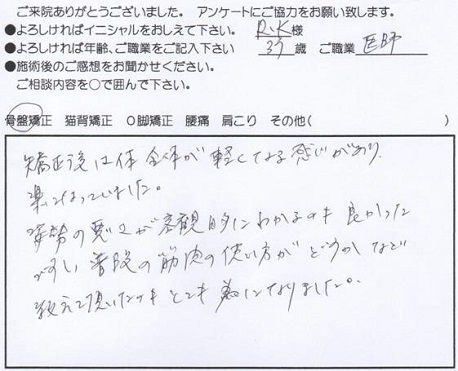 ご来院ありがとうございました。 アンケートにご協力をお願い致します。
●よろしければイニシャルをおしえて下さい。 R.K様
●よろしければ年齢、ご職業をご記入下さい 37歳 ご職業 医師
●施術後のご感想をお聞かせください。
ご相談内容を○で囲んで下さい。
骨盤矯正 猫背矯正 O脚矯正 腰痛 肩こり その他( )
矯正後は体全体が軽くなる感じがあり
楽になっていました。
姿勢の悪さが客観的にわかるのも良かった
ですし、普段の筋肉の使い方がどうかなど
教えて頂いたのもとても為になりました。